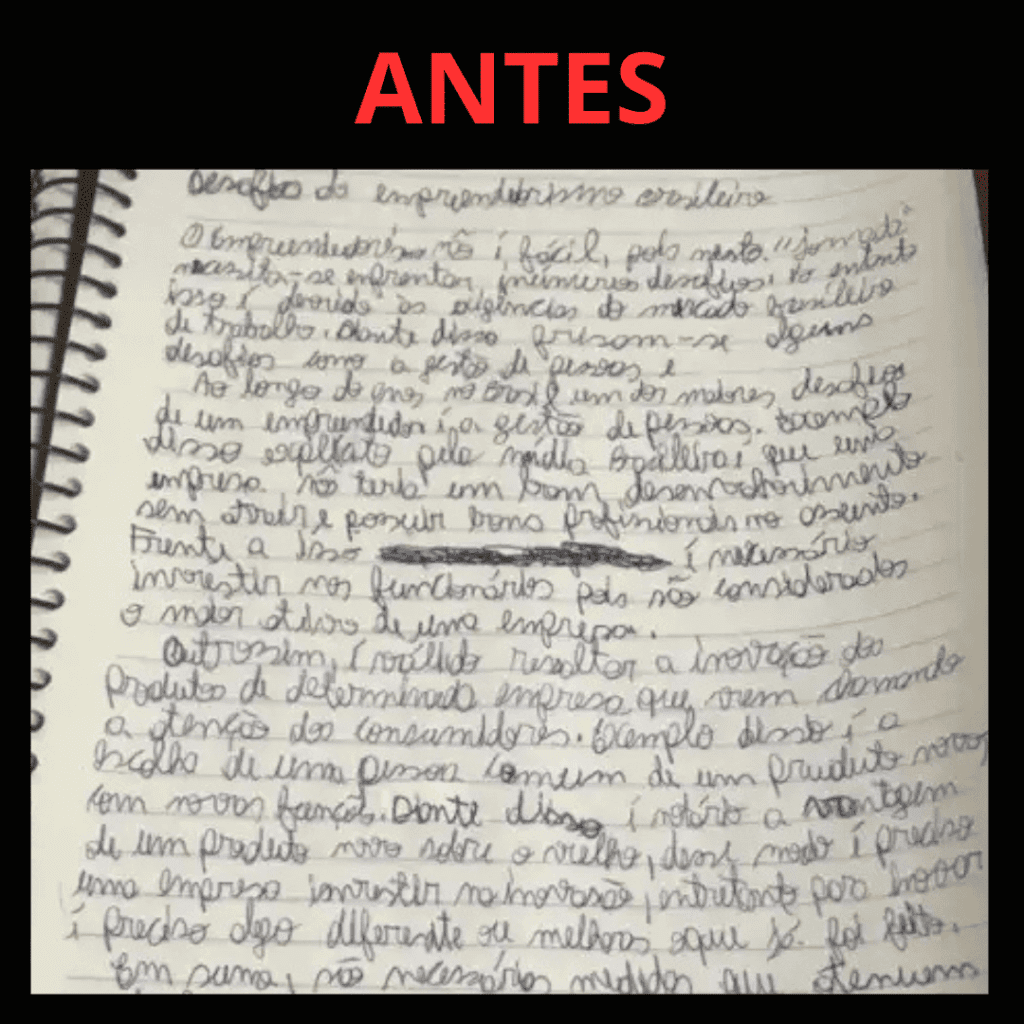 ANTES
Desafios do empreendedorismo brasileiro
O Empreendedorismo não é fácil, pois nesta "jornada"
necessita-se enfrentar, inúmeros desafios, no entanto
isso é devido às exigências do mercado brasileiro
de trabalho. Diante disso precisam-se alguns
desafios como a gestão de pessoas e
Ao longo do anos no Brasil um dos maiores, desafios
de um empreendedor é a gestão de pessoas. Exemplo
disso pela mídia brasileira, que uma
empresa não teria um bom desenvolvimento
sem atrair e possuir bons profissionais no assunto.
Frente a isso é necessário
investir nos funcionários pois são considerados
o maior ativo de uma empresa.
Outrossim, é válido ressaltar a inovação dos
produtos de determinada empresa que vem chamando
a atenção dos consumidores. Exemplo disso é a
escolha de uma pessoa comum de um produto novo,
com novas funções. Diante disso é notório a vantagem
de um produto novo sobre o velho, desse modo é preciso
uma empresa investir na inovação, entretanto para inovar
é preciso algo diferente ou melhorar oque já foi feito.
Em suma, são necessários medidas que atenuem